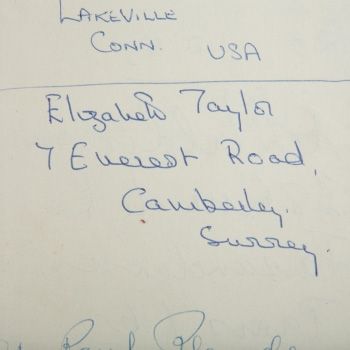 LAKEVILLE
CONN. USA
Elizabeth Taylor
7 Everest Road,
Camberley.
Surrey.